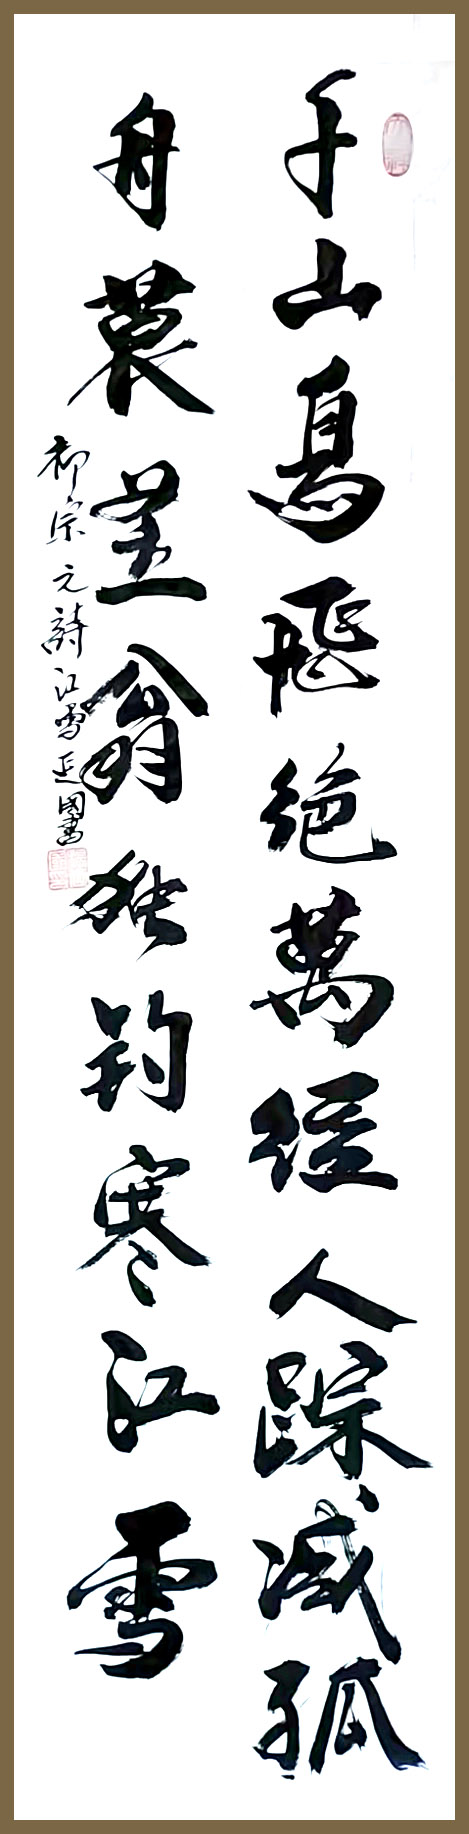 千山鳥飛絶萬徑人踪滅孤
舟蓑笠翁独釣寒江雪
柳宗元詩江雪國書